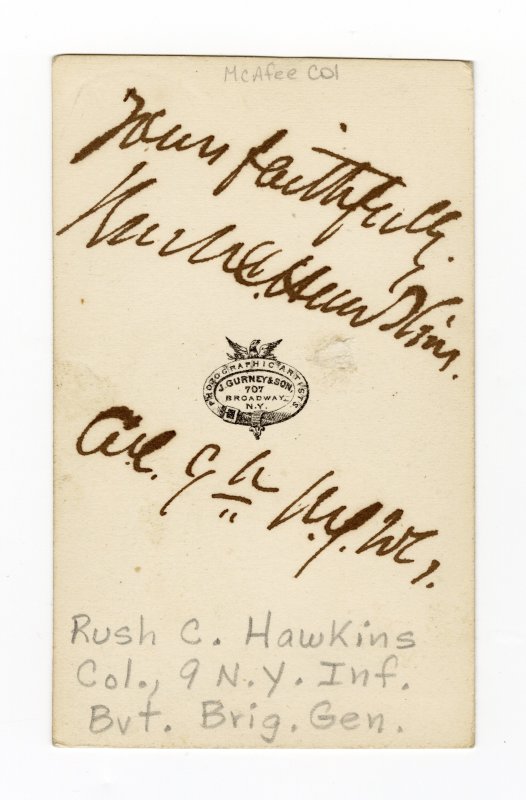 McAfee Col
Yours faithfully.
Rush C. Hawkins.
PHOTOGRAPHIC ARTISTS
J. GURNEY & SON,
707
BROADWAY
N.Y.
Col. 9th N.Y. Vols.
Rush C. Hawkins
Col., 9 N.Y. Inf.
Bvt. Brig. Gen.